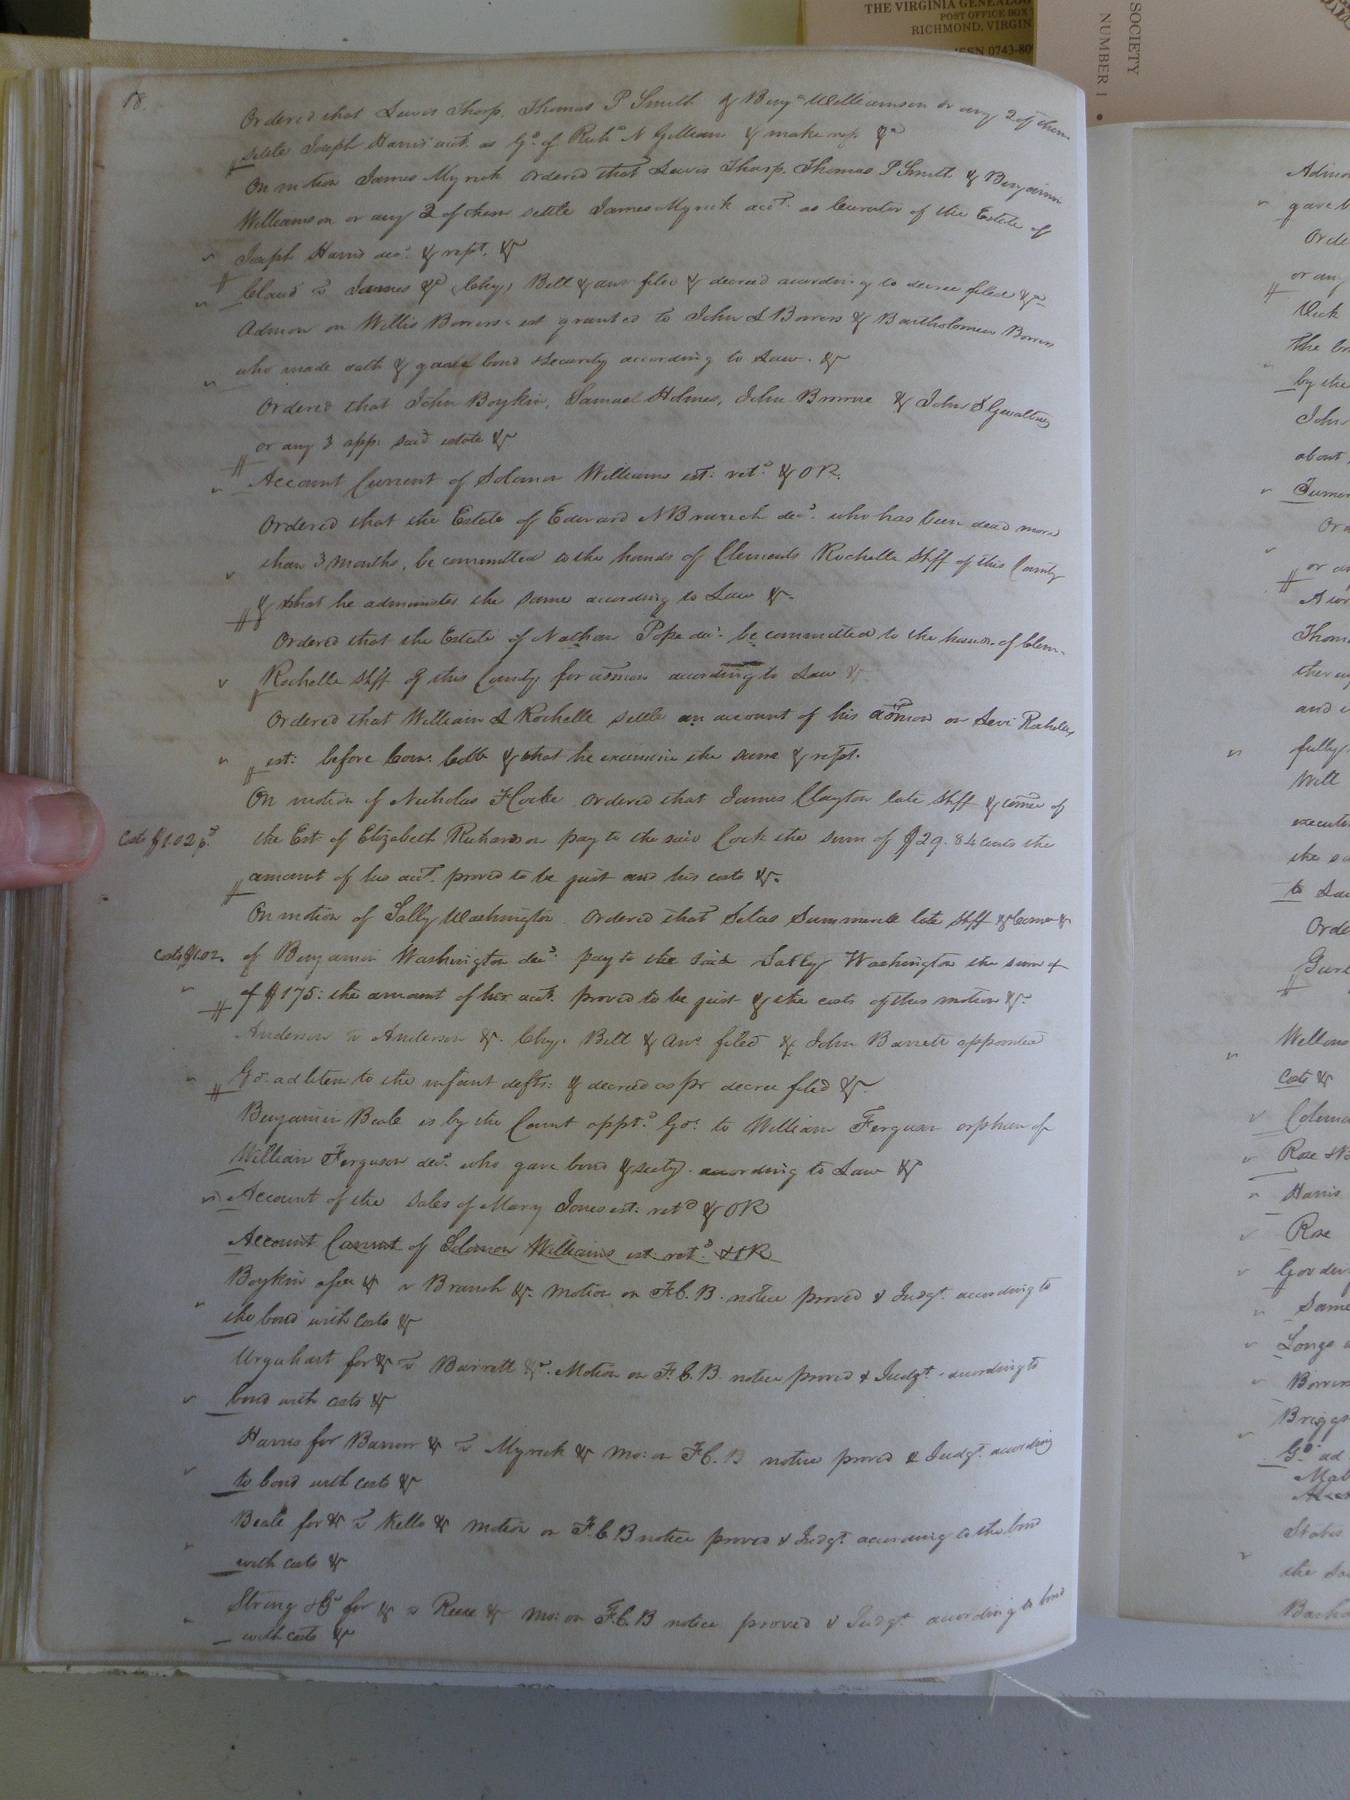 THE VIRGINIA GENEALOG
POST OFFICE BOX
RICHMOND, VIRGIN
ISSN 0743-80
SOCIETY
NUMBER 1
18
Ordered that Lewis Thorp, Thomas P Smith & Benjn Williamson or any 2 of them
settle Joseph Harris' acct. as Go. of N Gilliam & make rep. &c
On motion James Myrick ordered that Lewis Thorp, Thomas P Smith & Benjamin
Williamson or any 2 of them settle James Myrick acct. as Curator of the Estate of
Joseph Harris decd. & rept. &c
Claud vs James &c Chy, Bill & ans filed & decreed according to decree filed &c
Admon on Willis Bowers est granted to John S Bowers & Bartholomew Bowers
who made oath & gave bond & security according to Law. &c
Ordered that John Boykin, Samuel Holmes, John Browne & John S Gwaltney
or any 3 app: said estate &c
Account Current of Solomon Williams est: retd. & OR.
Ordered that the Estate of Edward N Branch decd. who has been dead more
than 3 months, be committed to the hands of Clements Rochelle Shff of this County
& that he administer the same according to Law &c.
Ordered that the Estate of Nathan Pope decd. be committed to the hands of Clem.
Rochelle Shff of this County for admon according to Law &c
Ordered that William S Rochelle settle an account of his admon on Levi Rochelles
est: before Com: Cobb & that he examine the same & rept.
On motion of Nicholas F Cocke ordered that James Clayton late Shff & comee of
Costs $1.02 pd
the Est of Elizabeth Richardson pay to the said Cock the sum of $29.84 cents the
amount of his acct. proved to be just and his costs &c.
On motion of Sally Washington ordered that Silas Summerell late Shff &
Costs $1.02.
of Benjamin Washington decd. pay to the said Sally Washington the sum
of $175: the amount of her acct. proved to be just & the costs of this motion &c
Anderson vs Anderson &c. Chy. Bill & Ans. filed & John Barrett appointed
Go. ad litem to the infant defts: & decreed as pr decree filed &c
Benjamin Beale is by the Court appt.d Go. to William Ferguson orphan of
William Ferguson decd. who gave bond & secty. according to Law &c
Account of the Sales of Mary Jones est: retd & OR
Account Currant of Solomon Williams est retd. & OR
Boykin &c v Branch &c. motion on F.C.B. notice proved & Judgt. according to
the bond with Costs &c
Urquhart for &c vs Barrett &c. Motion on F.C.B. notice proved & Judgt. according to
bond with costs &c
Harris for Barrow &c vs Myrick &c mo: on F.C.B notice proved & Judgt. according
to bond with costs &c
Beale for &c vs Kello &c motion on F.C.B notice proved & Judgt. according to the bond
with costs &c
for &c vs Reese &c mo: on F.C.B notice proved & Judgt according to bond
with costs &c
gave b
Orde
or any
Dick
the bo
by the
John
about
Ord
or an
Thom
ther
and
fully
Will
execut
the sa
to La
Orde
Costs &c
Colem
Harris
Rose
Same
Briggs
Go. ad
States
the sa